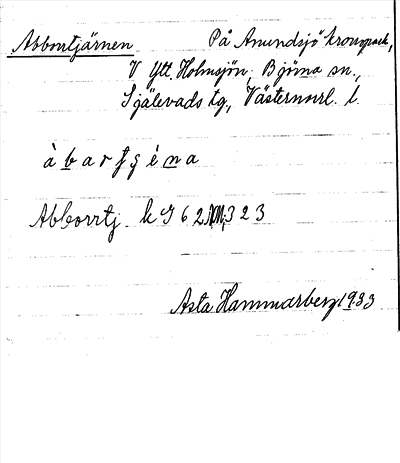 Abborrtjärnen På Anundsjö kronopark,
V Ytt. Holmsjön, Björna sn.,
Själevads tg., Västernorrl. l.
à b a r f ş é n a
Abborrtj. k J 6 2 323
Asta Hammarberg 1933